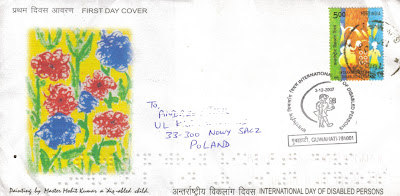 प्रथम दिवस आवरण FIRST DAY COVER
5.00
3-12-2007
INTERNATIONAL DAY OF DISABLED PERSONS
गुवाहाटी, GUWAHATI-781001
TO,
UL
33-300 NOWY SACZ
POLAND
Painting by: Master Mohit Kumar a 'dis'-abled child.
अन्तर्राष्ट्रीय विकलांग दिवस INTERNATIONAL DAY OF DISABLED PERSONS